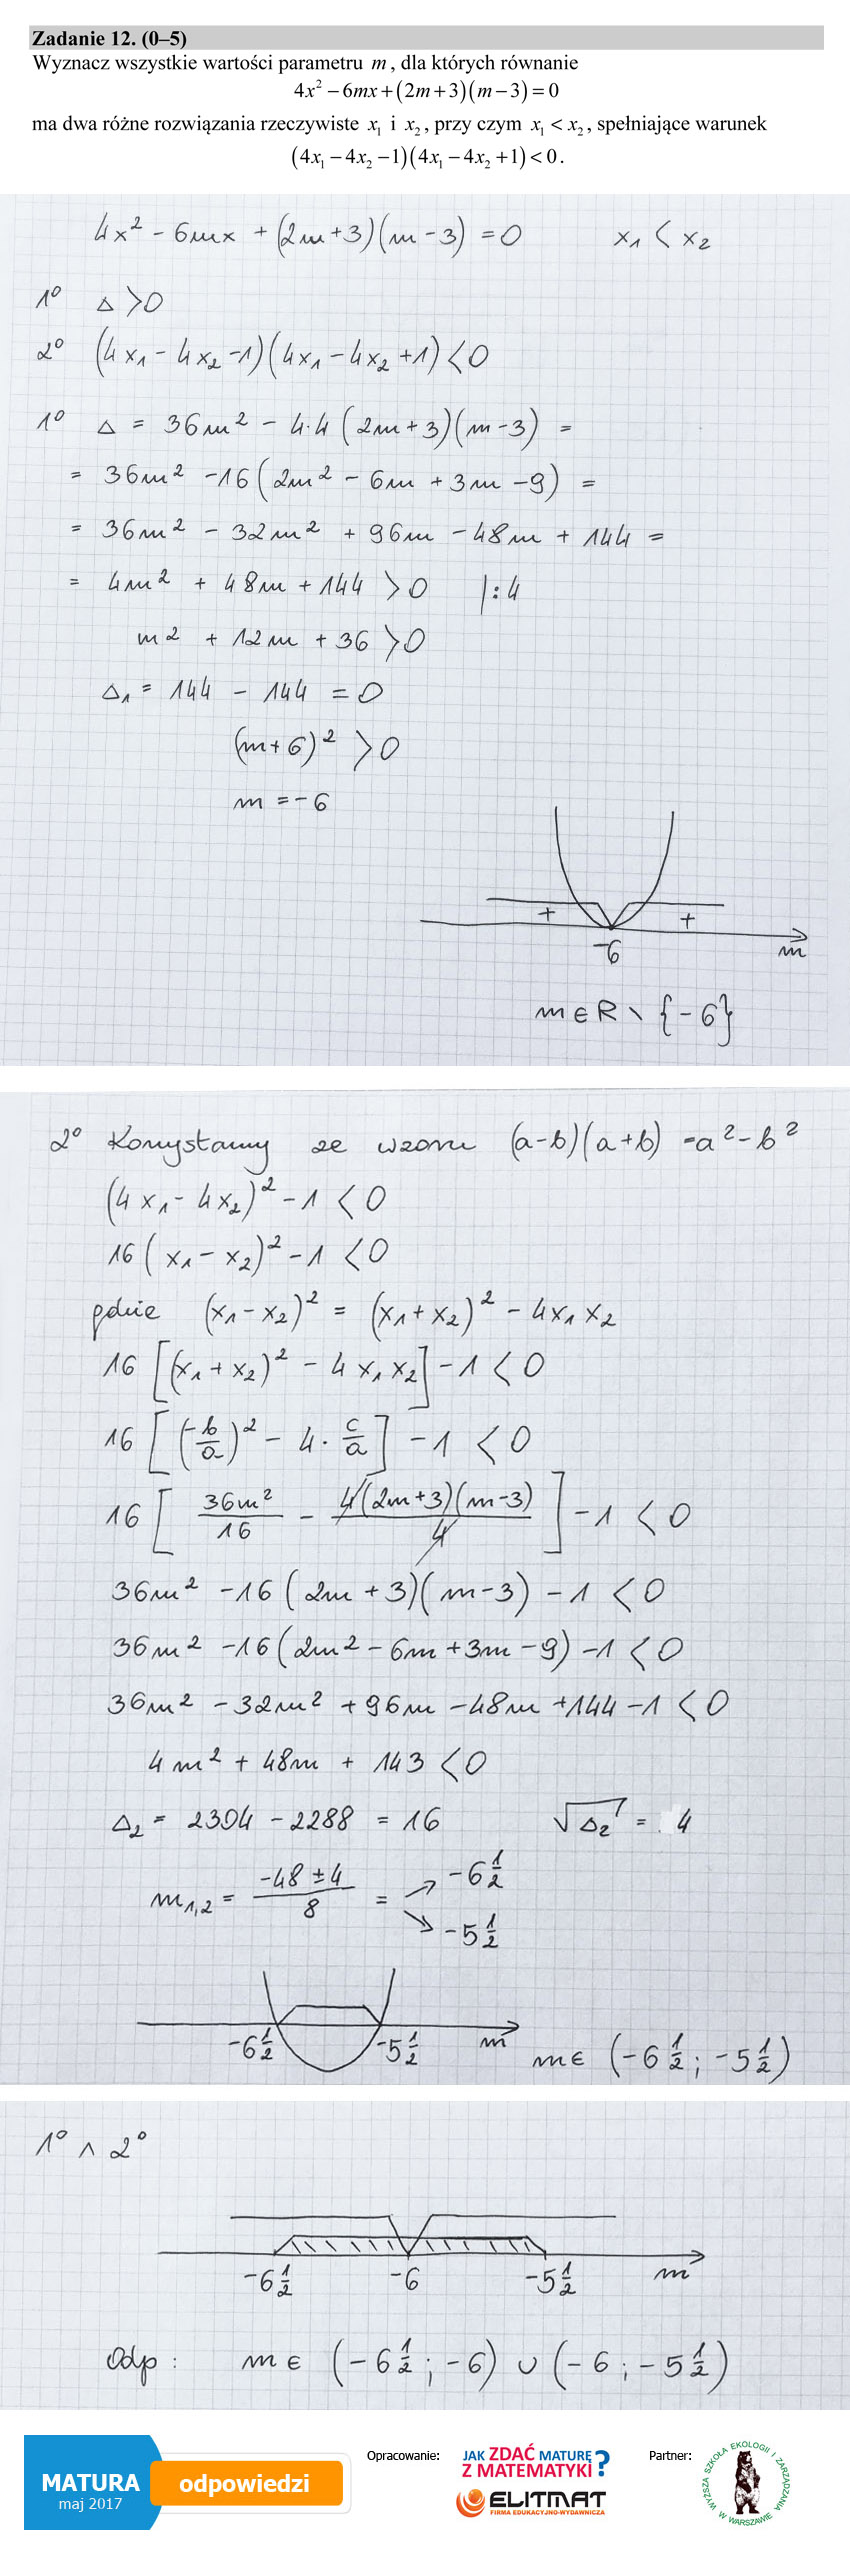 Zadanie 12. (0–5)
Wyznacz wszystkie wartości parametru m, dla których równanie
4x² – 6mx + (2m + 3)(m – 3) = 0
ma dwa różne rozwiązania rzeczywiste x₁ i x₂, przy czym x₁ < x₂, spełniające warunek
(4x₁ – 4x₂ – 1)(4x₁ – 4x₂ + 1) < 0.
4x² - 6mx + (2m+3)(m-3) = 0 x₁ < x₂
1° Δ > 0
2° (4x₁ - 4x₂ - 1)(4x₁ - 4x₂ + 1) < 0
1° Δ = 36m² - 4·4(2m+3)(m-3) =
= 36m² - 16(2m² - 6m + 3m - 9) =
= 36m² - 32m² + 96m - 48m + 144 =
= 4m² + 48m + 144 > 0 |:4
m² + 12m + 36 > 0
Δ₁ = 144 - 144 = 0
(m+6)² > 0
m = -6
+ +
-6 m
m ∈ R \ {-6}
2° Korzystamy ze wzoru (a-b)(a+b) = a² - b²
(4x₁ - 4x₂)² - 1 < 0
16(x₁ - x₂)² - 1 < 0
gdzie (x₁ - x₂)² = (x₁ + x₂)² - 4x₁x₂
16[(x₁ + x₂)² - 4x₁x₂] - 1 < 0
16[(-b/a)² - 4·c/a] - 1 < 0
16[36m²/16 - 4(2m+3)(m-3)/4] - 1 < 0
36m² - 16(2m+3)(m-3) - 1 < 0
36m² - 16(2m² - 6m + 3m - 9) - 1 < 0
36m² - 32m² + 96m - 48m + 144 - 1 < 0
4m² + 48m + 143 < 0
Δ₂ = 2304 - 2288 = 16 √Δ₂ = 4
m₁,₂ = (-48 ± 4)/8 = ↗ -6 1/2
↘ -5 1/2
-6 1/2 -5 1/2 m m ∈ (-6 1/2 ; -5 1/2)
1° ∧ 2°
-6 1/2 -6 -5 1/2 m
Odp: m ∈ (-6 1/2 ; -6) ∪ (-6 ; -5 1/2)
MATURA
maj 2017
odpowiedzi
Opracowanie:
JAK ZDAĆ MATURĘ
Z MATEMATYKI?
ELITMAT
FIRMA EDUKACYJNO-WYDAWNICZA
Partner:
WYŻSZA SZKOŁA EKOLOGII I ZARZĄDZANIA
W WARSZAWIE